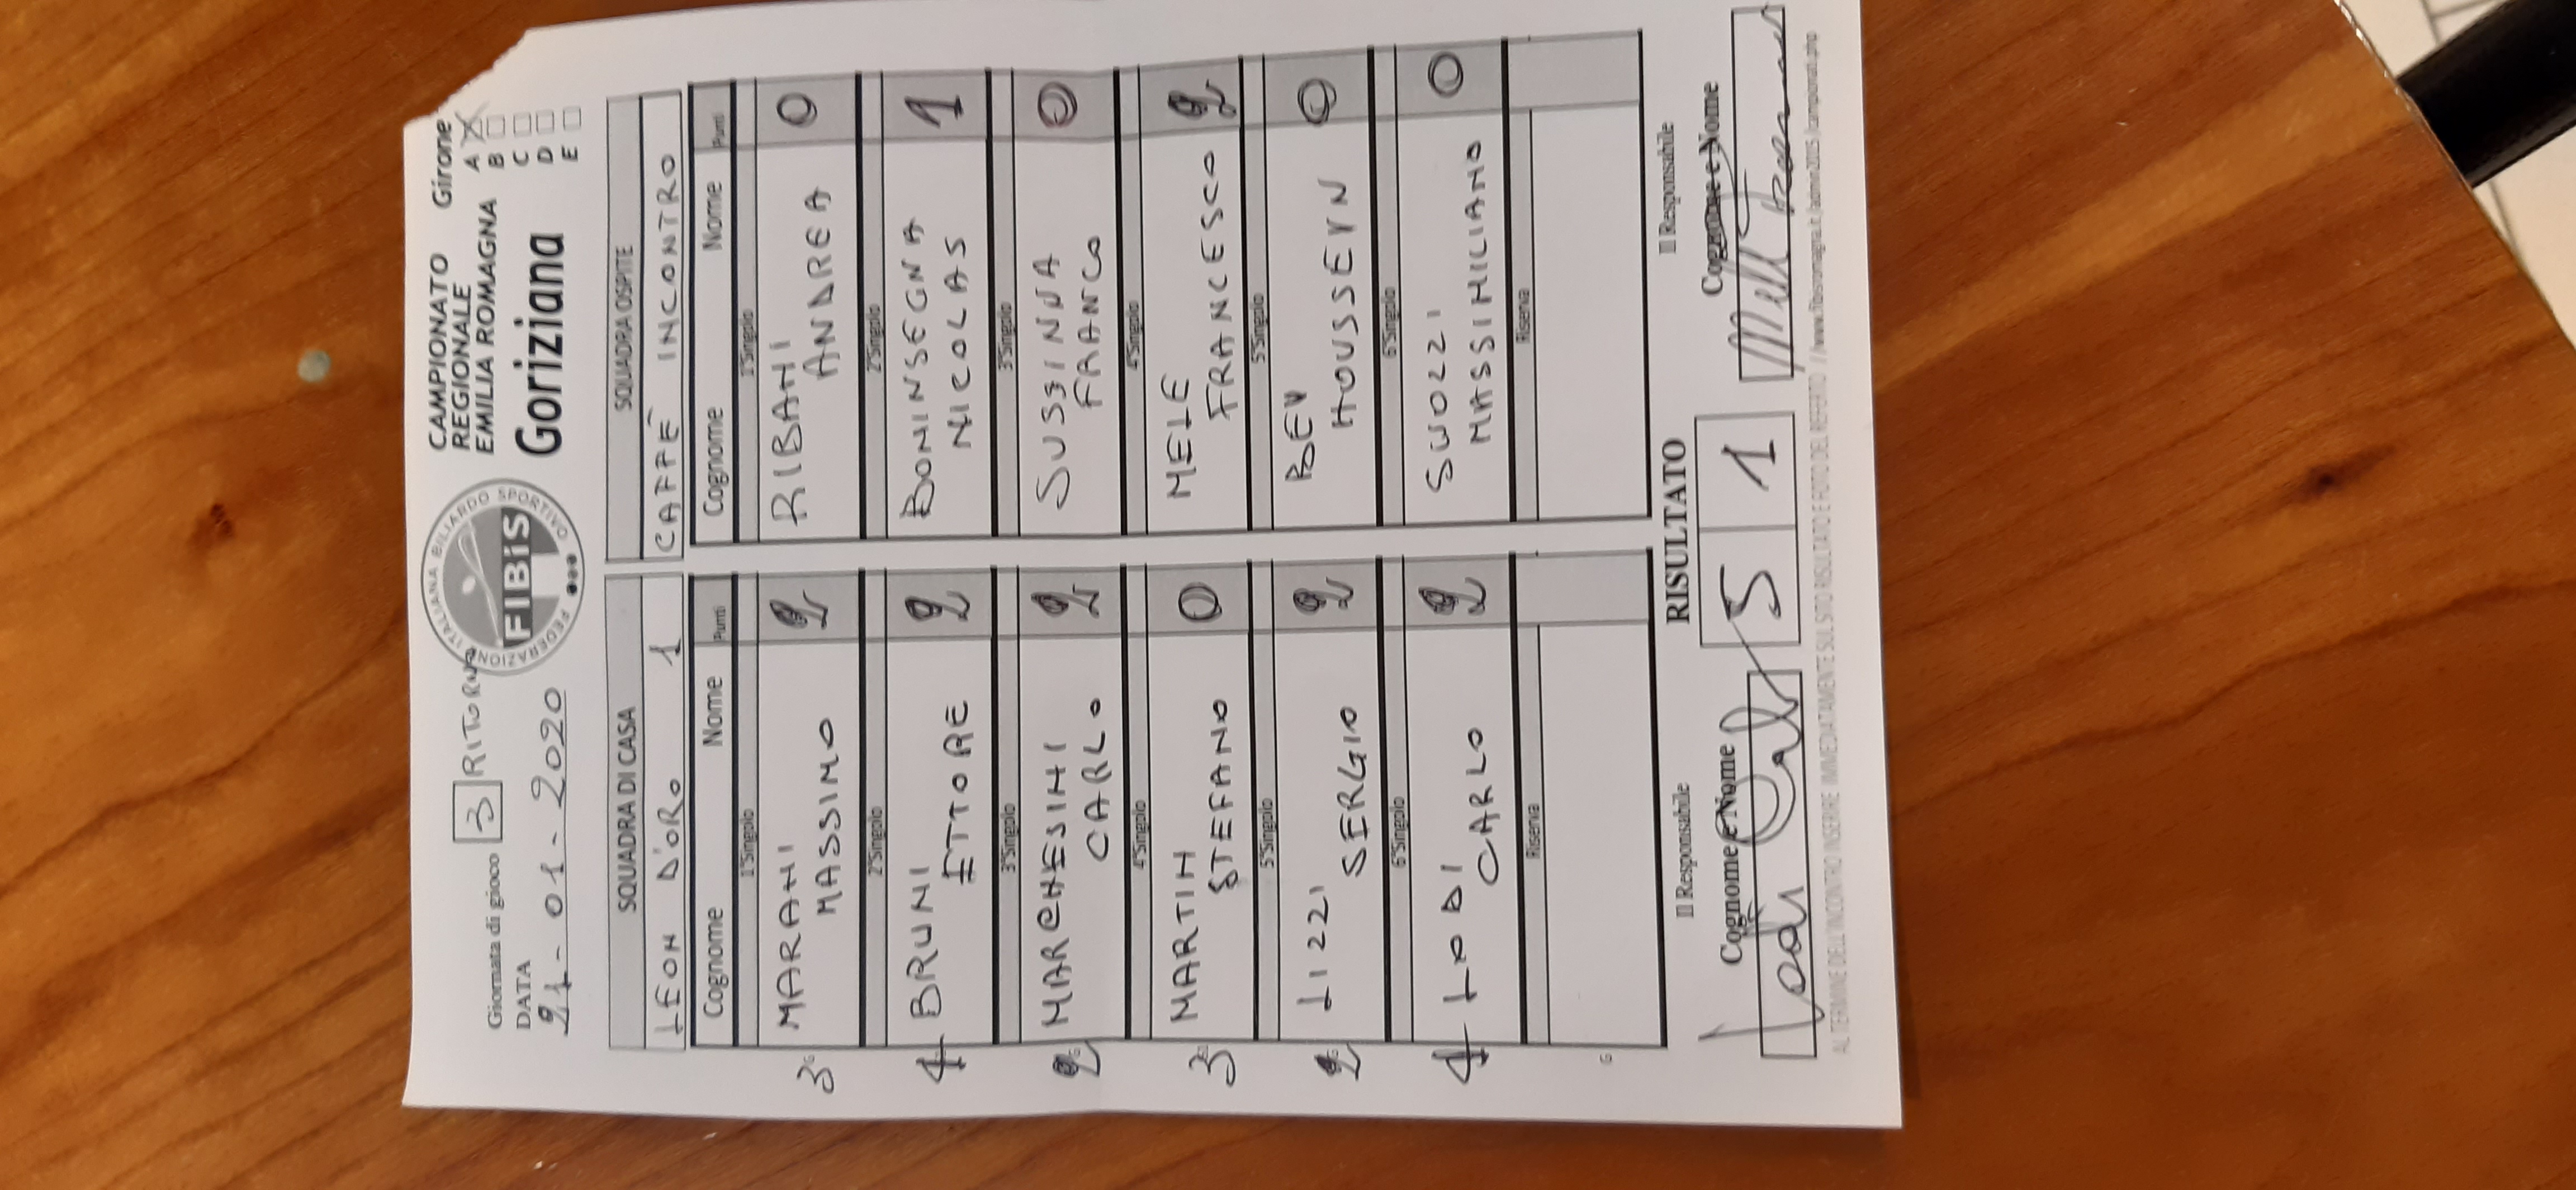 Giornata di gioco 3 RITORNO
DATA
21-01-2020
FEDERAZIONE ITALIANA BILIARDO SPORTIVO
FIBiS
CAMPIONATO
REGIONALE
EMILIA ROMAGNA
Goriziana
Girone
A X
B
C
D
E
SQUADRA DI CASA
LEON D'ORO 1
Cognome Nome Punti
1°Singolo
MARANI
MASSIMO 2
2°Singolo
BRUNI
ETTORE 2
3°Singolo
MARCHESINI
CARLO 2
4°Singolo
MARTIN
STEFANO 0
5°Singolo
LIZZI
SERGIO 2
6°Singolo
LODI
CARLO 2
Riserva
3
4
2
3
2
4
G
SQUADRA OSPITE
CAFFÈ INCONTRO
Cognome Nome Punti
1°Singolo
RIBANI
ANDREA 0
2°Singolo
BONINSEGNA
NICOLAS 1
3°Singolo
SUSSINNA
FRANCO 0
4°Singolo
MELE
FRANCESCO 2
5°Singolo
BEN
HOUSSEYN 0
6°Singolo
SUOZZI
MASSIMILIANO 0
Riserva
Il Responsabile
Cognome e Nome
Lodi Carlo
RISULTATO
5 1
Il Responsabile
Cognome e Nome
AL TERMINE DELL'INCONTRO INSERIRE IMMEDIATAMENTE SUL SITO RISULTATO E FOTO DEL REFERTO